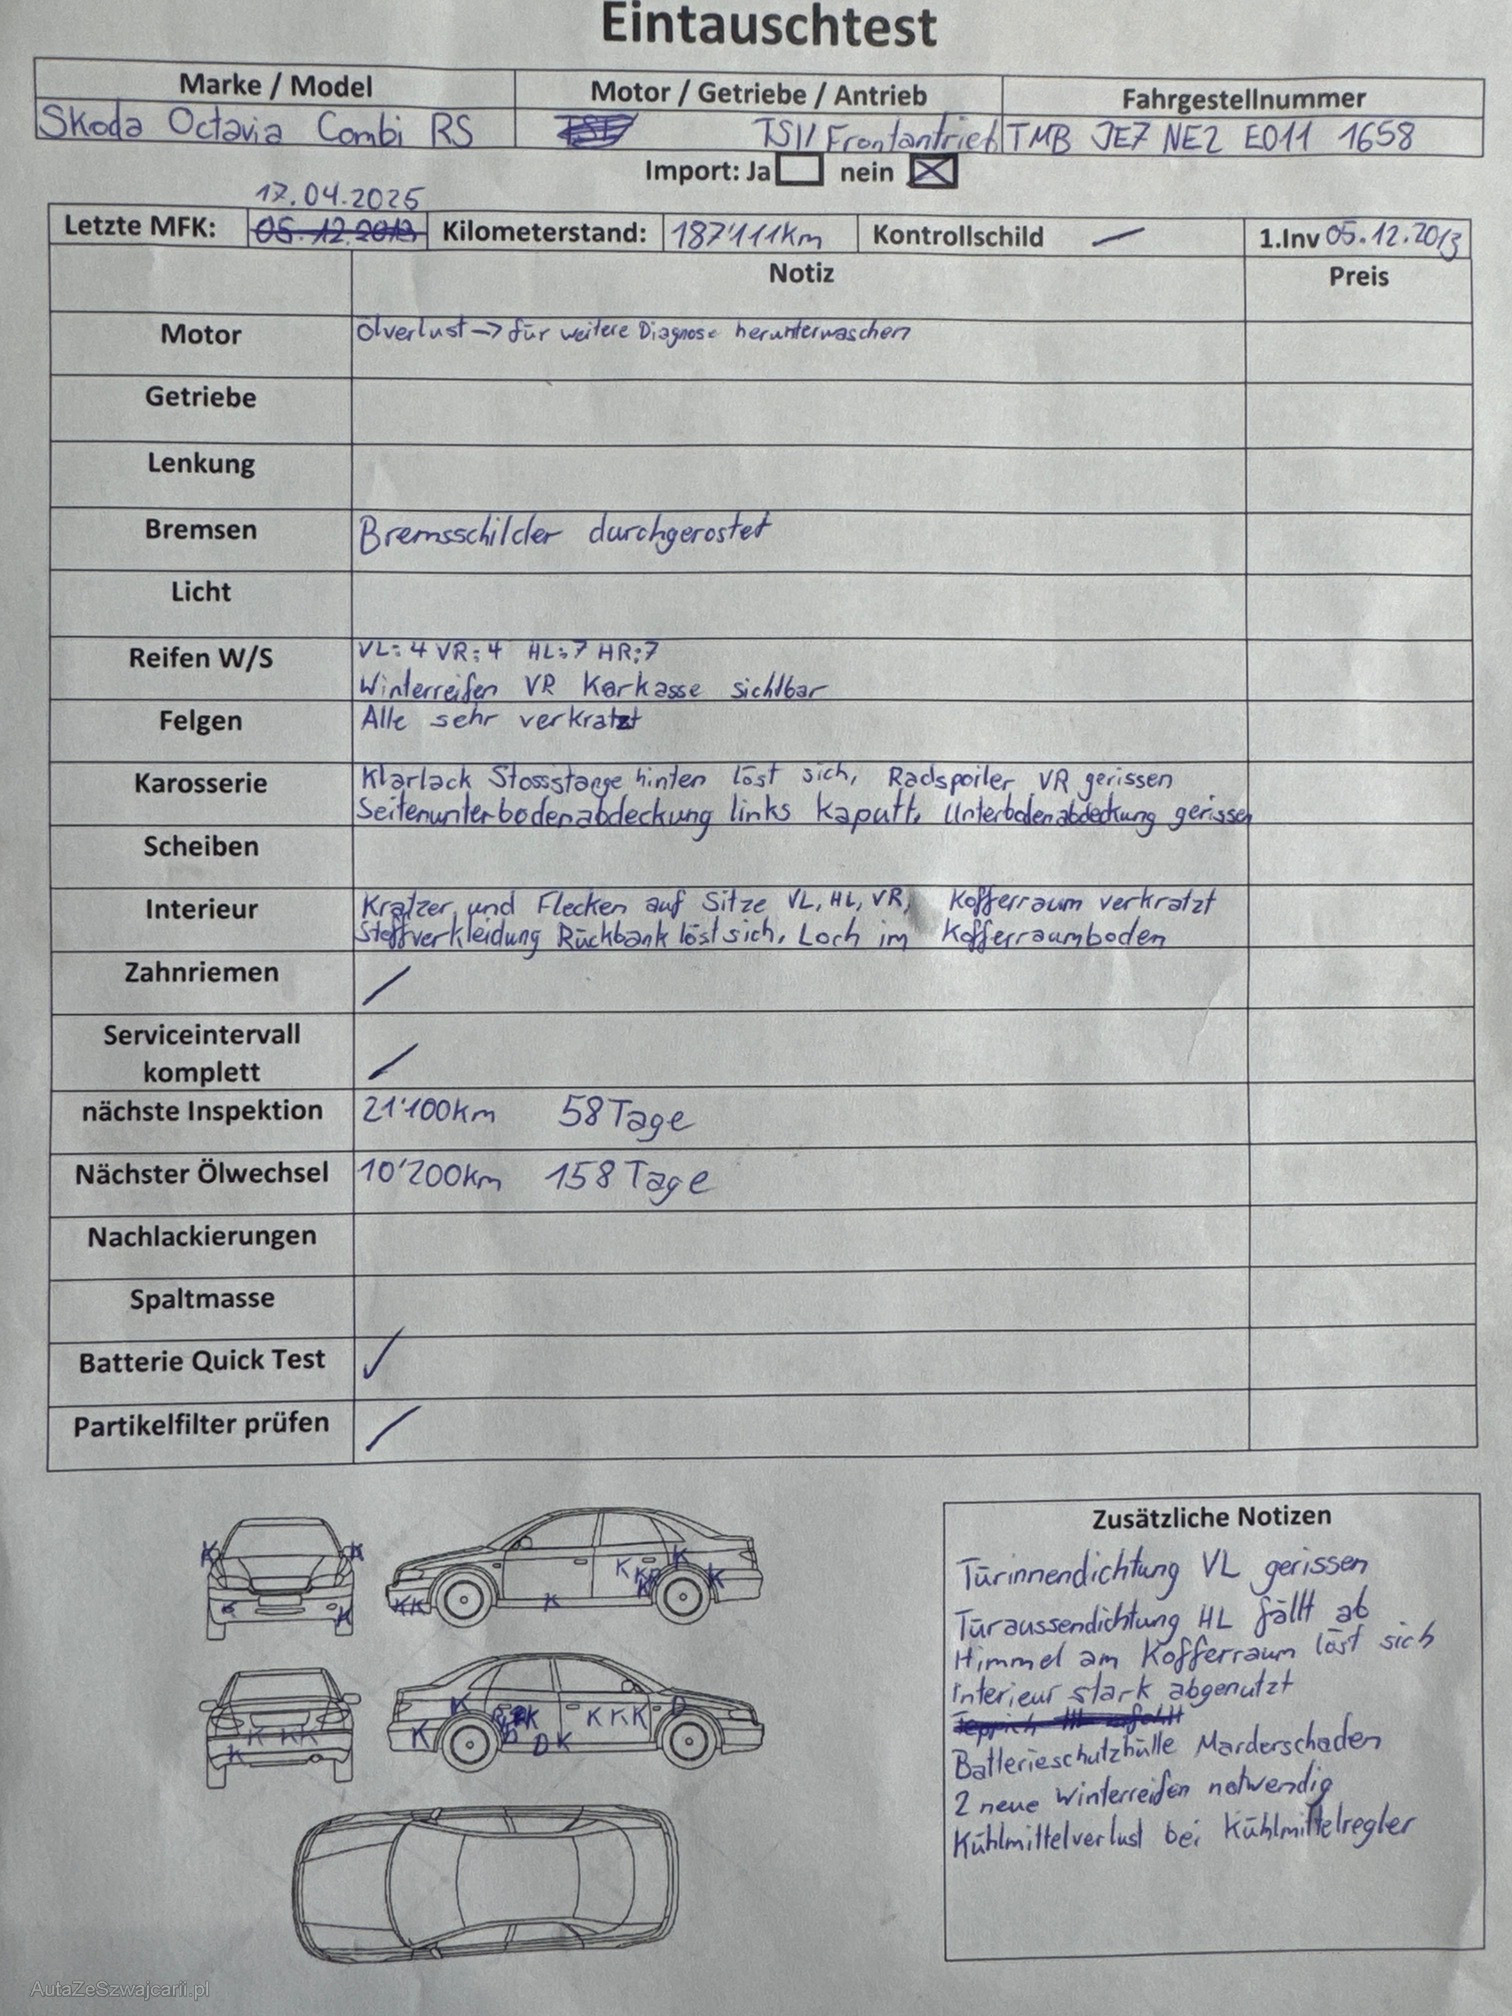 Eintauschtest
Marke / Model Motor / Getriebe / Antrieb Fahrgestellnummer
Skoda Octavia Combi RS TSI/ Frontantrieb TMB JE7 NE2 E011 1658
Import: Ja nein
17.04.2025
Letzte MFK: 05.12.2013 Kilometerstand: 187'111km Kontrollschild 1.Inv 05.12.2013
Notiz Preis
Motor Ölverlust -> für weitere Diagnose herunterwaschen
Getriebe
Lenkung
Bremsen Bremsschilder durchgerostet
Licht
Reifen W/S VL: 4 VR: 4 HL: 7 HR: 7
Winterreifen VR Karkasse sichtbar
Felgen Alle sehr verkratzt
Karosserie Klarlack Stossstange hinten löst sich, Radspoiler VR gerissen
Seitenunterbodenabdeckung links kaputt, Unterbodenabdeckung gerissen
Scheiben
Interieur Kratzer und Flecken auf Sitze VL, HL, VR, Kofferraum verkratzt
Stoffverkleidung Rückbank löst sich, Loch im Kofferraumboden
Zahnriemen
Serviceintervall
komplett
nächste Inspektion 21'100km 58 Tage
Nächster Ölwechsel 10'200km 158 Tage
Nachlackierungen
Spaltmasse
Batterie Quick Test
Partikelfilter prüfen
Zusätzliche Notizen
Türinnendichtung VL gerissen
Türaussendichtung HL fällt ab
Himmel am Kofferraum löst sich
Interieur stark abgenutzt
Batterieschutzhülle Marderschaden
2 neue Winterreifen notwendig
Kühlmittelverlust bei Kühlmittelregler
K K
K K
K K K K K K K K
K K K K
K K K K K K D
D K
AutaZeSzwajcarii.pl